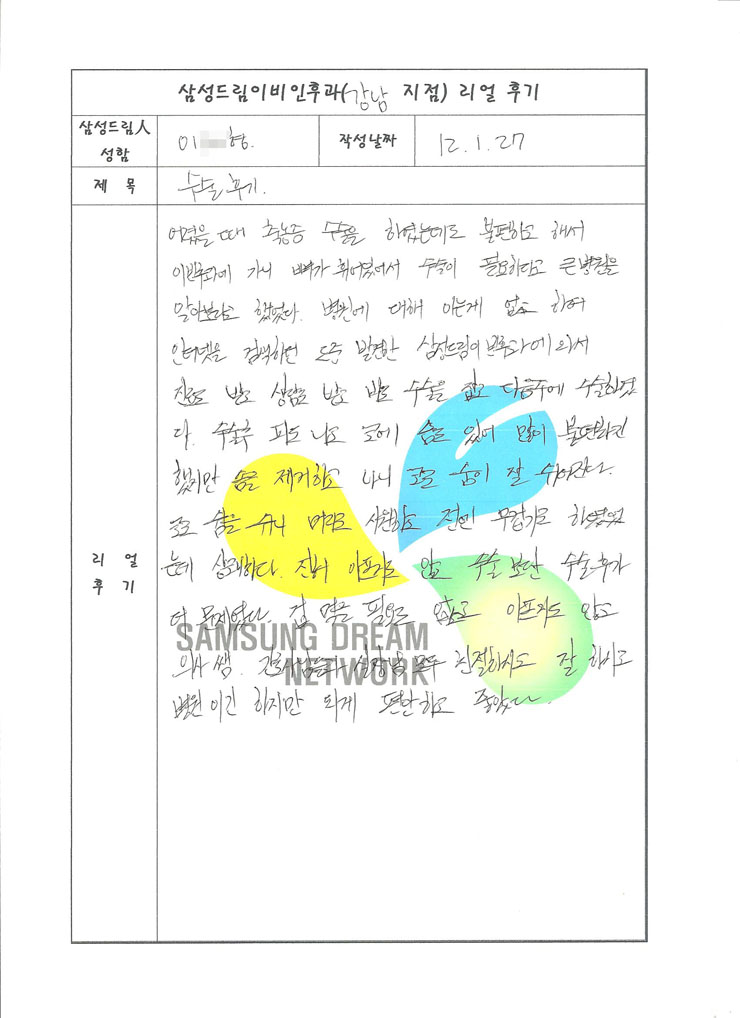 삼성드림이비인후과(강남 지점) 리얼 후기
삼성드림人 성함
이 형.
작성날짜
12.1.27
제 목
수술후기.
리 얼 후 기
어렸을 때 축농증 수술을 하였는데도 불편하고 해서
이빈후과에 가니 뼈가 휘어있어서 수술이 필요하다고 큰병원을
알아보라고 했었다. 병원에 대해 아는게 없고 하여
인터넷을 검색하던 도중 발견한 삼성드림이빈후과에 의서
진료 받고 상담도 받고 바로 수술을 잡고 다음주에 수술하였
다. 수술후 피도 나고 코에 솜도 있어 많이 불편하긴
했지만 솜을 제거하고 나니 코로 숨이 잘 쉬어진다.
코로 숨을 쉬니 머리도 시원하고 전엔 무겁기도 하였었
는데 상쾌하다. 전혀 아프지도 않고 수술보단 수술후가
더 문제였다. 겁 먹을 필요도 없고 아프지도 않고
의사쌤. 간호사님들과 실장님 모두 친절하시도 잘 하시고
병원이긴 하지만 되게 편안하고 좋았다.
SAMSUNG DREAM
NETWORK